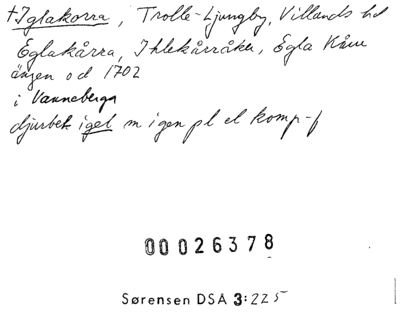 †Iglakorra, Trolle-Ljungby, Villands hd
Eglakårra, Ihlekårråker, Egla Kårre
ängen od 1702
i Vanneberga
djurbet igel m i gen pl el komp-f
00026378
Sørensen DSA 3:225